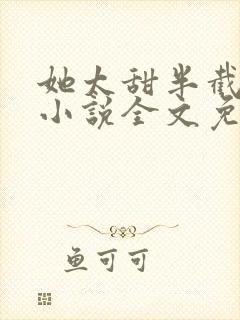 她太甜半截
小说全文免
鱼可可